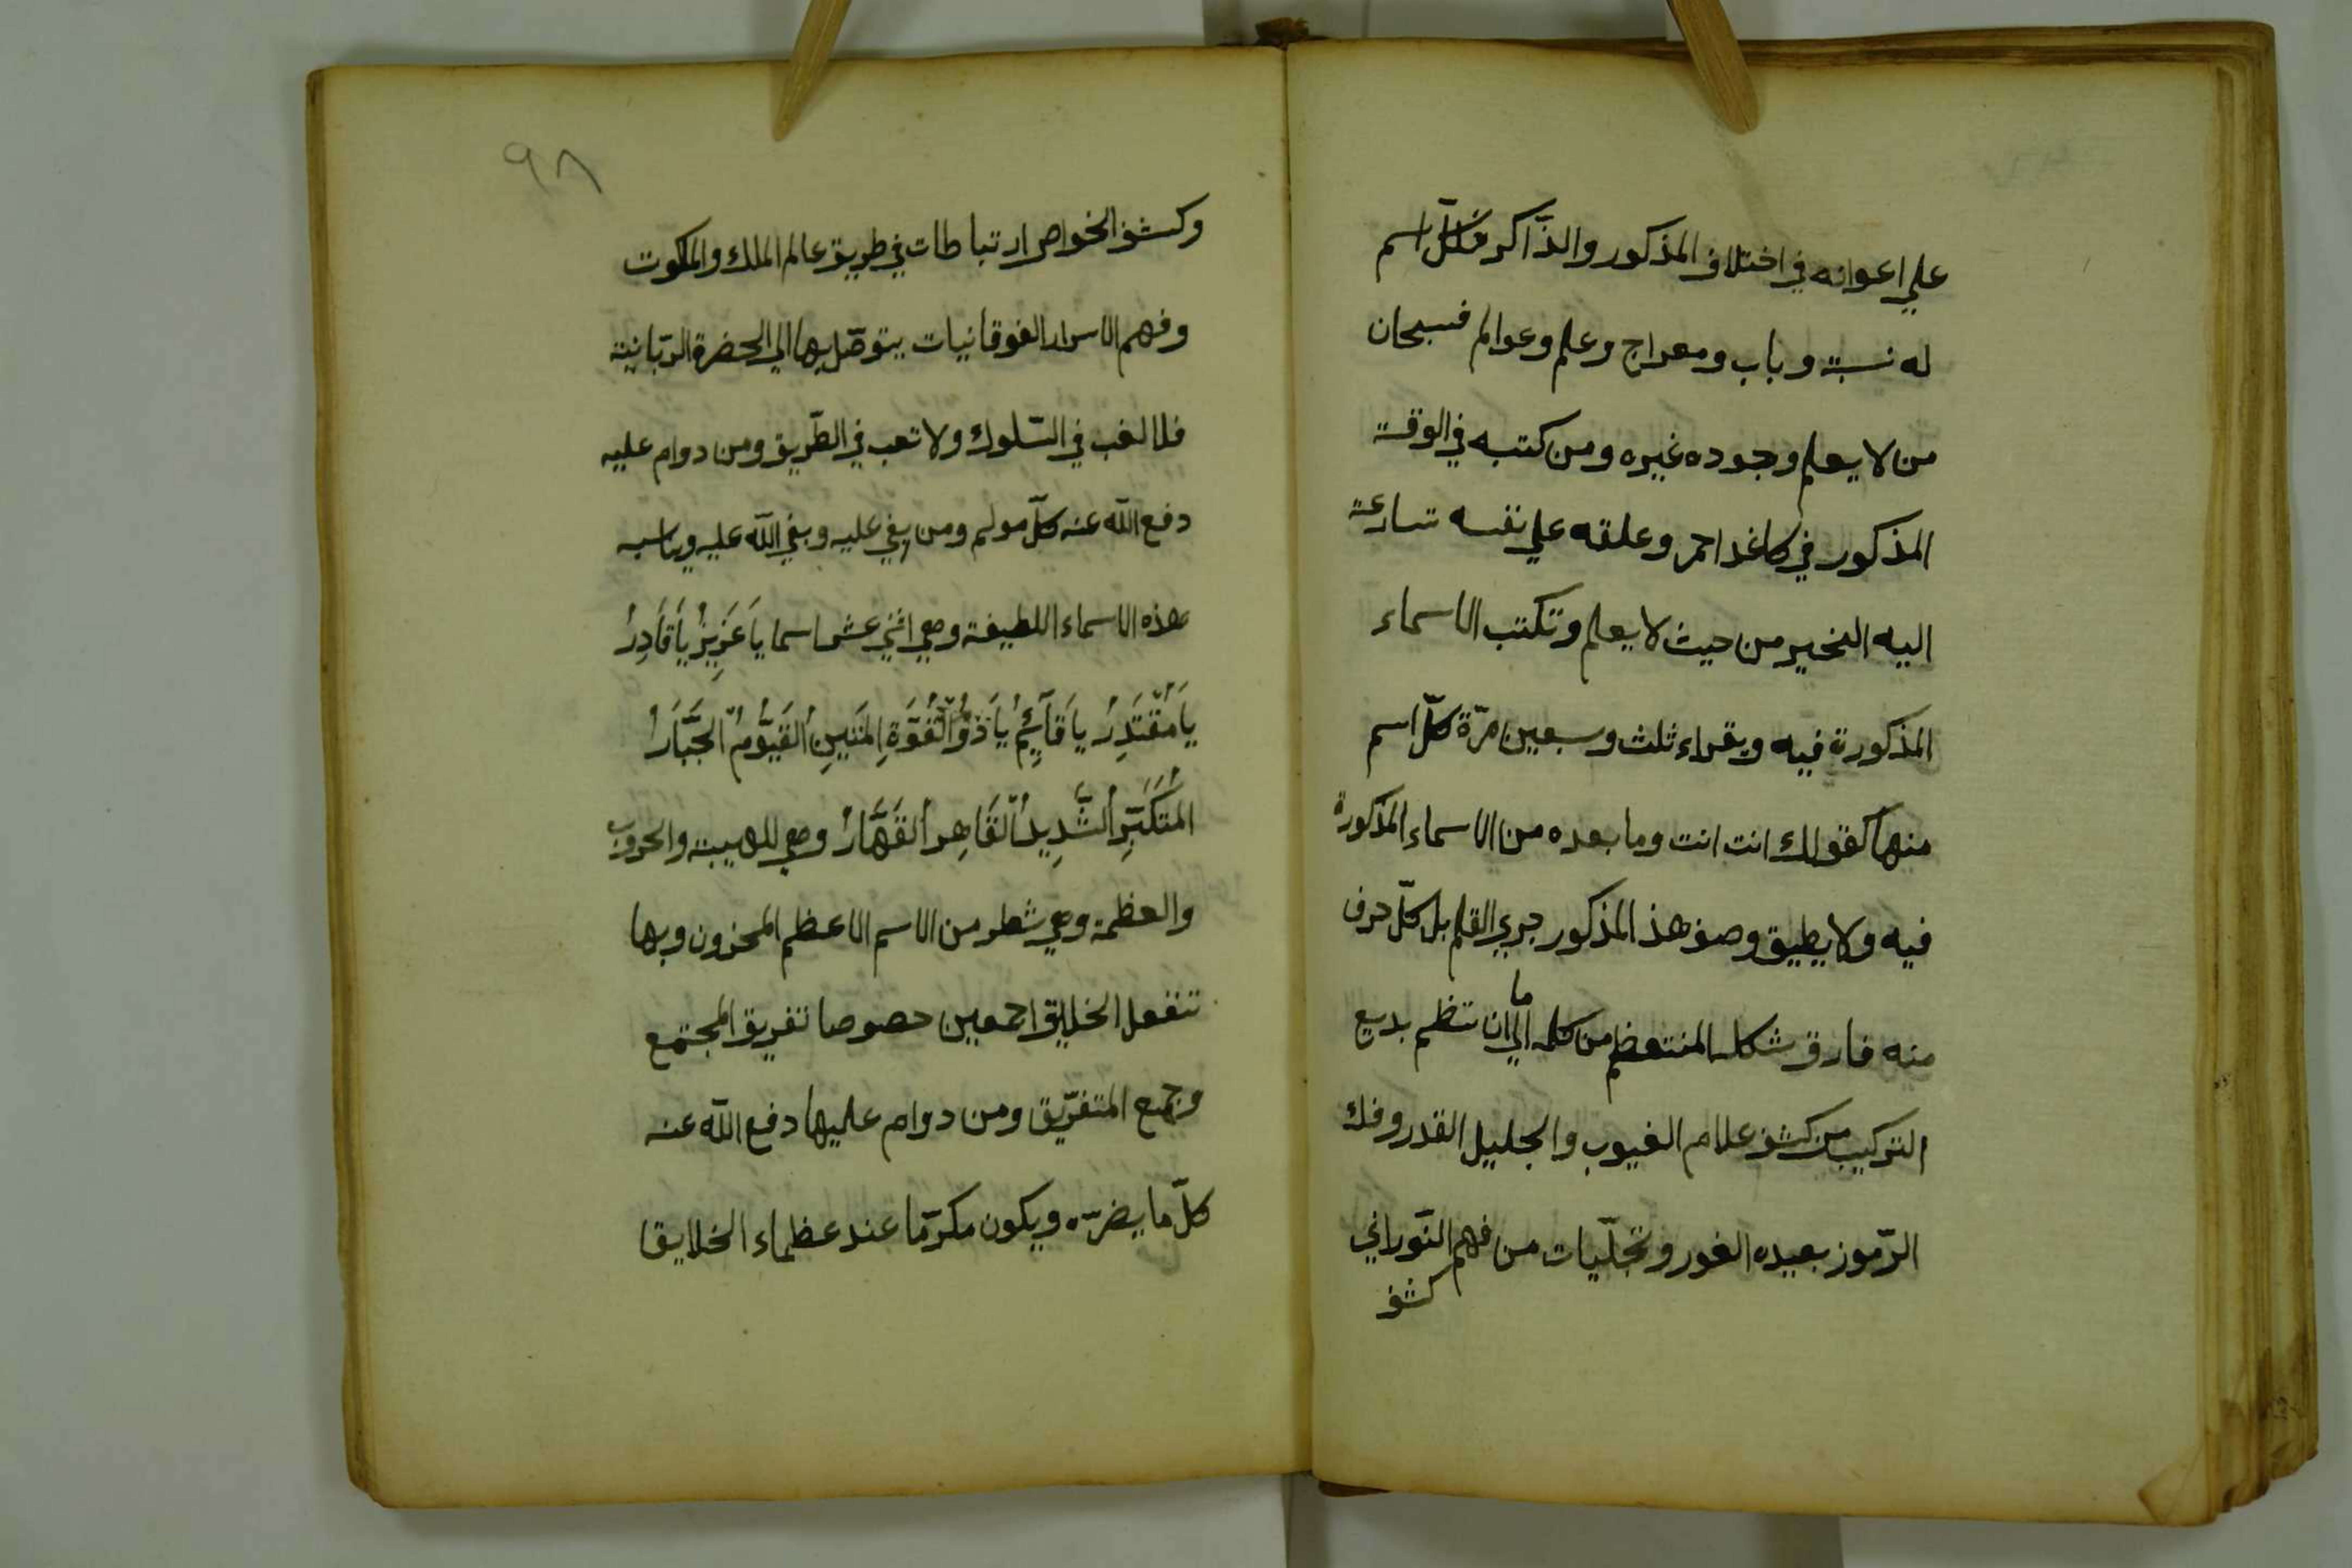 علي اعوانه في اختلاف المذكور والذّاكر فلكلّ اسم
له نسبة وباب ومعراج وعلم وعوالم فسبحان
من لا يعلم وجوده غيره ومن كتبه في الوقت
المذكور في كاغد احمر وعلقه علي نفسه تسارعة
اليه الخير من حيث لا يعلم وتكتب الاسماء
المذكورة فيه ويقراء ثلث وسبعين مرّة كلّ اسم
منها كقولك انت انت وما بعده من الاسماء المذكورة
فيه ولا يطيق وصف هذ المذكور جري القلم بل كلّ حرف
منه فارق شكله المنتعظم من كله الي ان ما تنظم بديع
التركيب من كشف علام الغيوب والجليل القدر وفك
الرّموز بعيده الغور وتجلّيات من فهم النّوراني
كشف
٩٨
وكشف الخواص ارتباطات في طريق عالم الملك والملكوت
وفهم الاسرار الفوقانيات يتوصّل بها الي الحضرة الرّبانية
فلا لغب في السّلوك ولا تعب في الطّريق ومن دوام عليه
دفع اللّه عنه كلّ مولم ومن يغي عليه وبغي اللّه عليه ويناسبه
هذه الاسماء اللطيفة وهي اثني عشر اسما يَا عَزِيزُ يَا قَادِرُ
يَا مُقْتَدِرُ يا قَآئِمُ يَا ذُو الْقُوَّةِ المَتَينِ القَيُّومُ الجَّبَارُ
المُتَكَبِّرُ الشَّدِيدُ القَاهِرُ القَهَّارُ وهي للهيبة والحروب
والعظمة وهي شطر من الاسم الاعظم المخزون وبها
تنفعل الخليق اجمعين حصوصا تفريق المجتمع
وجمع المتفرّيق ومن دوام عليها دفع اللّه عنه
كلّ ما يضرّه ويكون مكرّما عند عظماء الخلايقا